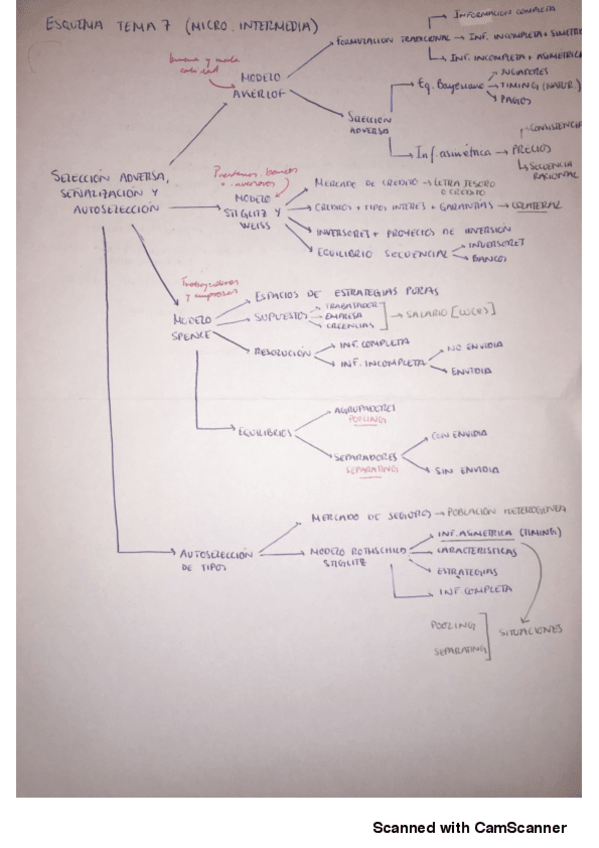 ESQUEMA TEMA 7 (MICRO. INTERMEDIA)
INFORMACIÓN COMPLETA
FORMULACIÓN TRADICIONAL → INF. INCOMPLETA + SIMETRI
INF. INCOMPLETA + ASIMETRICA
buena y mala
calidad
MODELO
AKERLOF
SELECCIÓN
ADVERSA
Eq. Bayesiano
JUGADORES
TIMING (NATUR.)
PAGOS
Inf. asimétrica → PRECIOS
CONSISTENCIA
SECUENCIA
RACIONAL
SELECCIÓN ADVERSA,
SEÑALIZACIÓN Y
AUTOSELECCIÓN
Prestamos, bancos
+ inversores
MODELO
STIGLITZ Y
WEISS
MERCADO DE CREDITO → LETRA TESORO
O CREDITO
CREDITOS + TIPOS INTERES + GARANTIAS → COLATERAL
INVERSORES + PROYECTOS DE INVERSIÓN
EQUILIBRIO SECUENCIAL
INVERSORES
BANCOS
Trabajadores
y empresas
MODELO
SPENCE
ESPACIOS DE ESTRATEGIAS PURAS
SUPUESTOS
TRABAJADOR
EMPRESA
CREENCIAS
→ SALARIO
RESOLUCIÓN
INF. COMPLETA
INF. INCOMPLETA
NO ENVIDIA
ENVIDIA
EQUILIBRIOS
AGRUPADORES
POOLING
SEPARADORES
SEPARATING
CON ENVIDIA
SIN ENVIDIA
AUTOSELECCIÓN
DE TIPOS
MERCADO DE SEGUROS → POBLACIÓN HETEROGENEA
MODELO ROTHSCHILD
STIGLITZ
INF. ASIMETRICA (TIMING)
CARACTERISTICAS
ESTRATEGIAS
INF. COMPLETA
POOLING
SEPARATING
SITUACIONES
Scanned with CamScanner